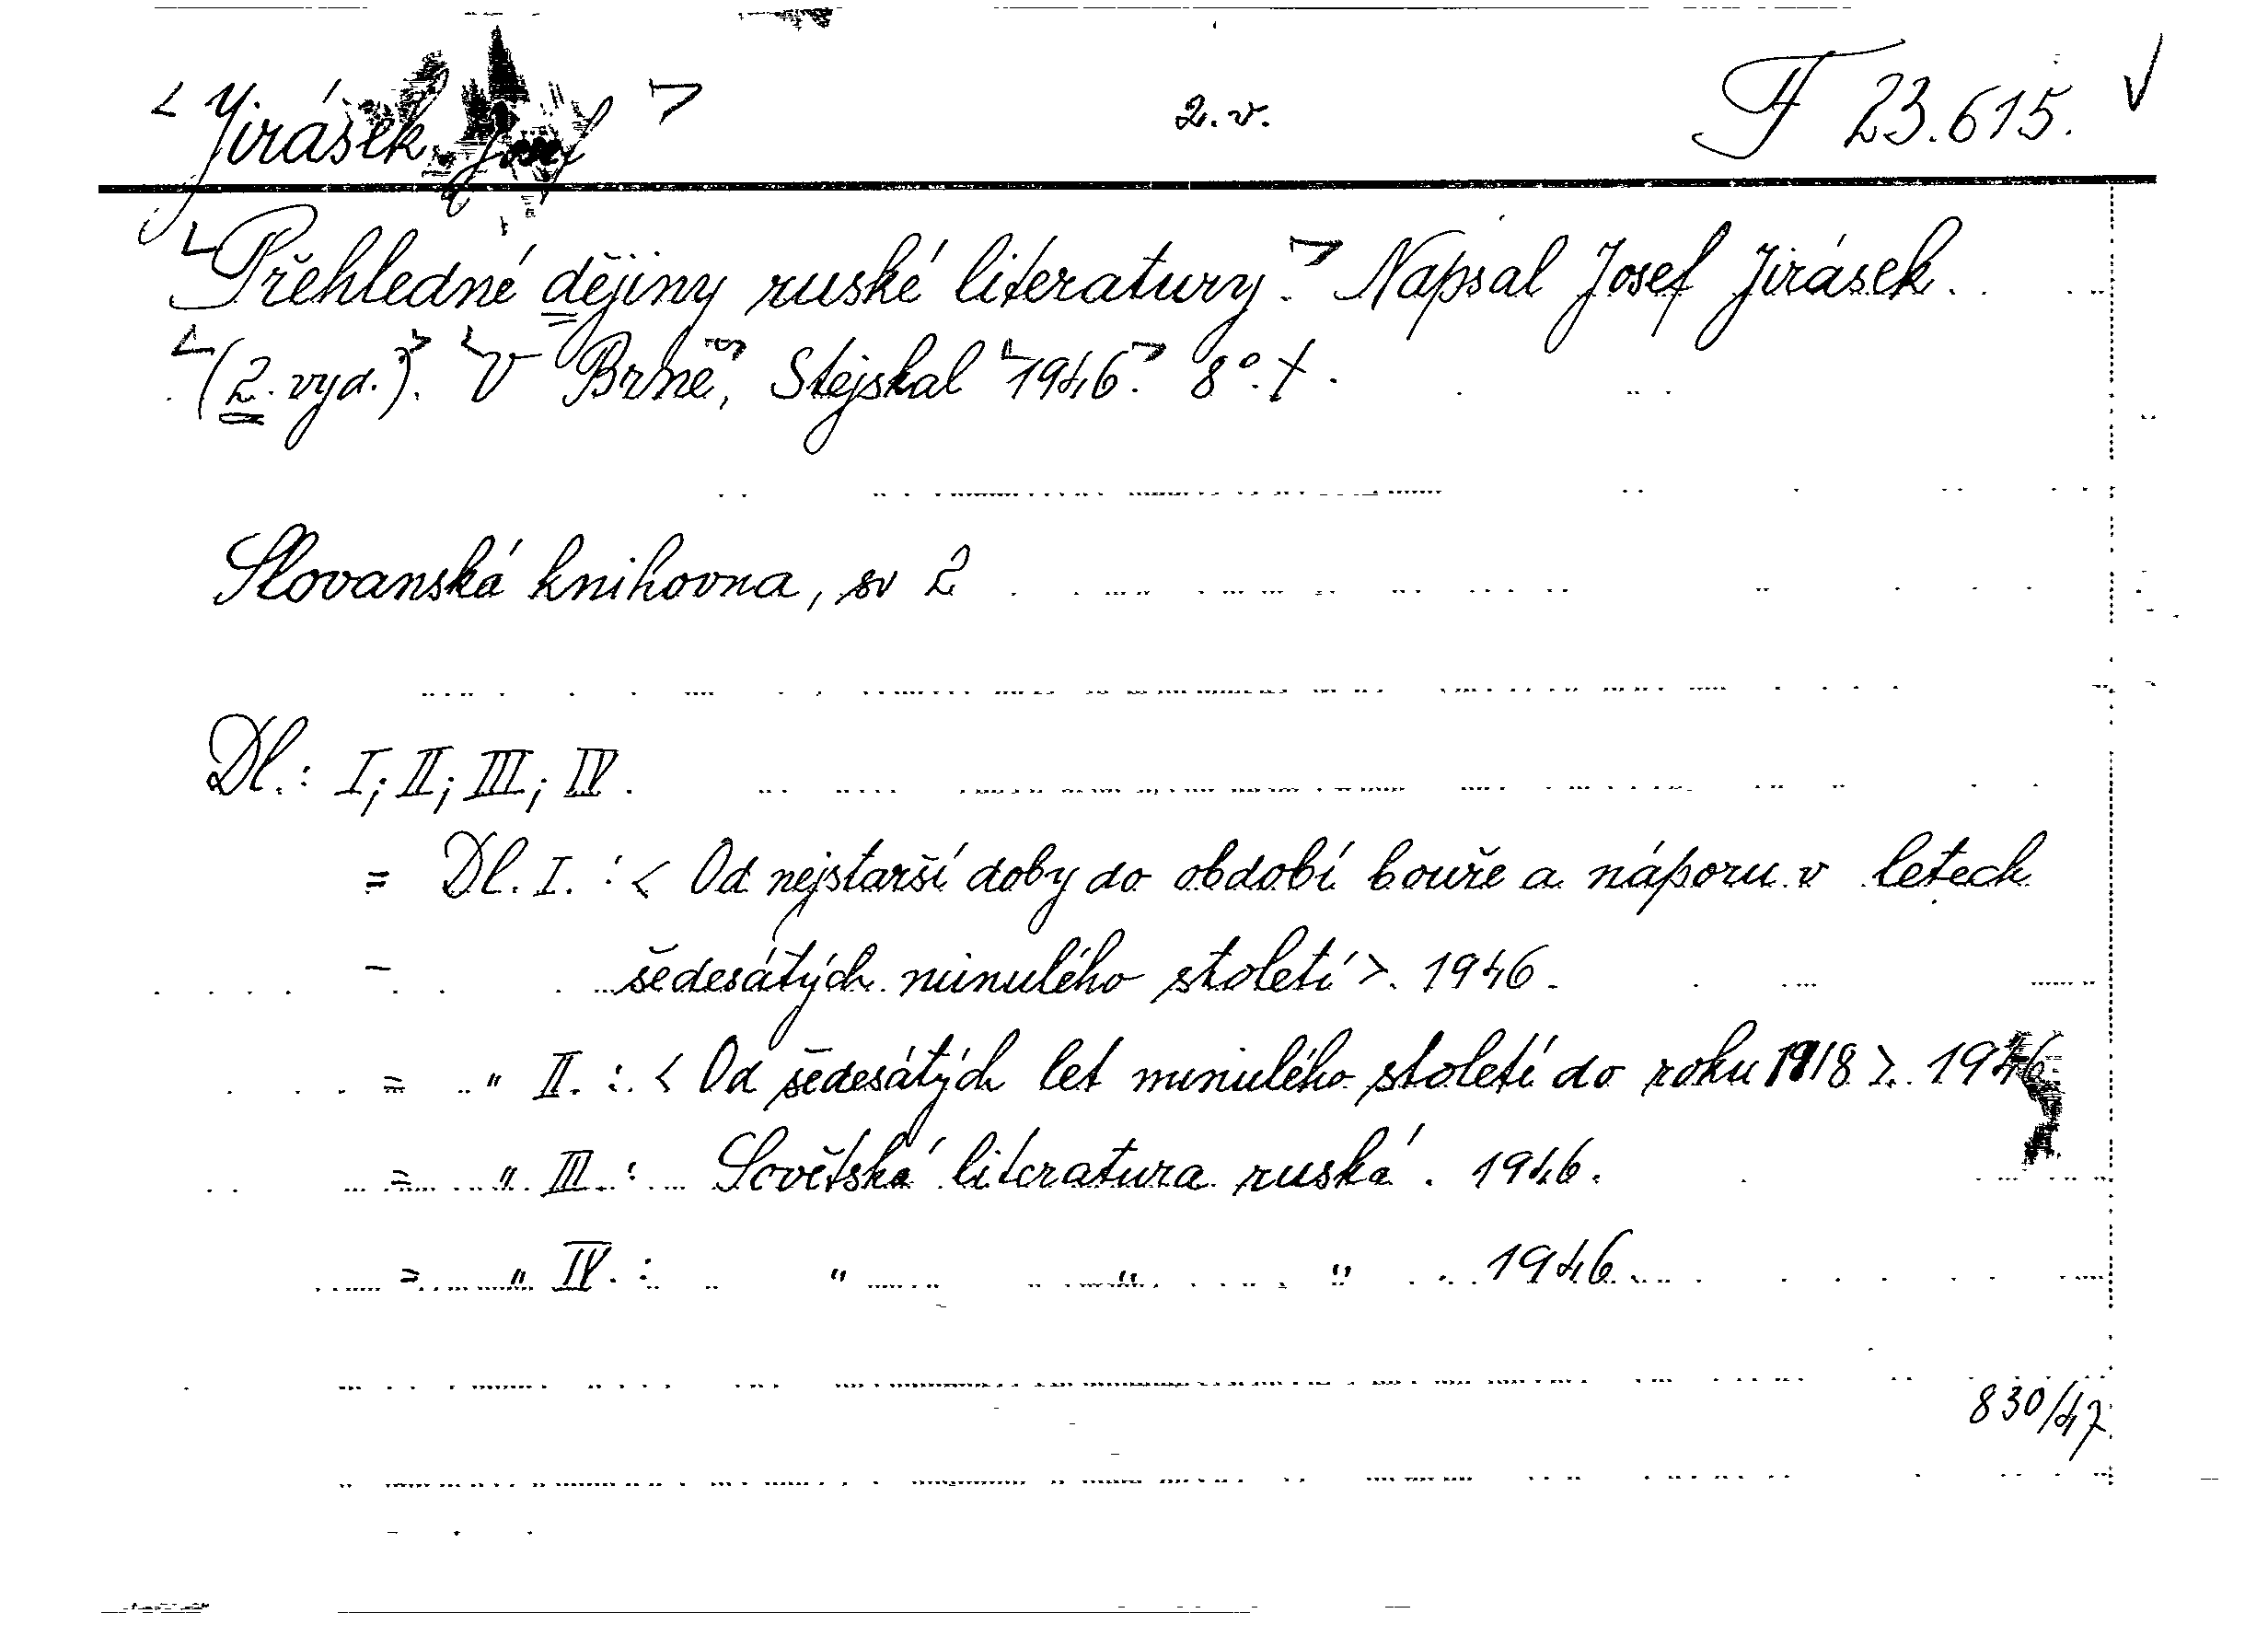 < Jirásek Josef > 2. v. F 23.615. √
<Přehledné dějiny ruské literatury.> Napsal Josef Jirásek.
<(2. vyd.).> <V Brně,> Stejskal <1946.> 8°. †.
Slovanská knihovna, sv 2
Dl.: I; II; III; IV.
= Dl. I. : < Od nejstarší doby do období bouře a náporu v letech
šedesátých minulého století >. 1946.
= " II. : < Od šedesátých let minulého století do roku 1918 >. 1946.
= " III. : Sovětská literatura ruská. 1946.
= " IV. : " " " . 1946.
830/47